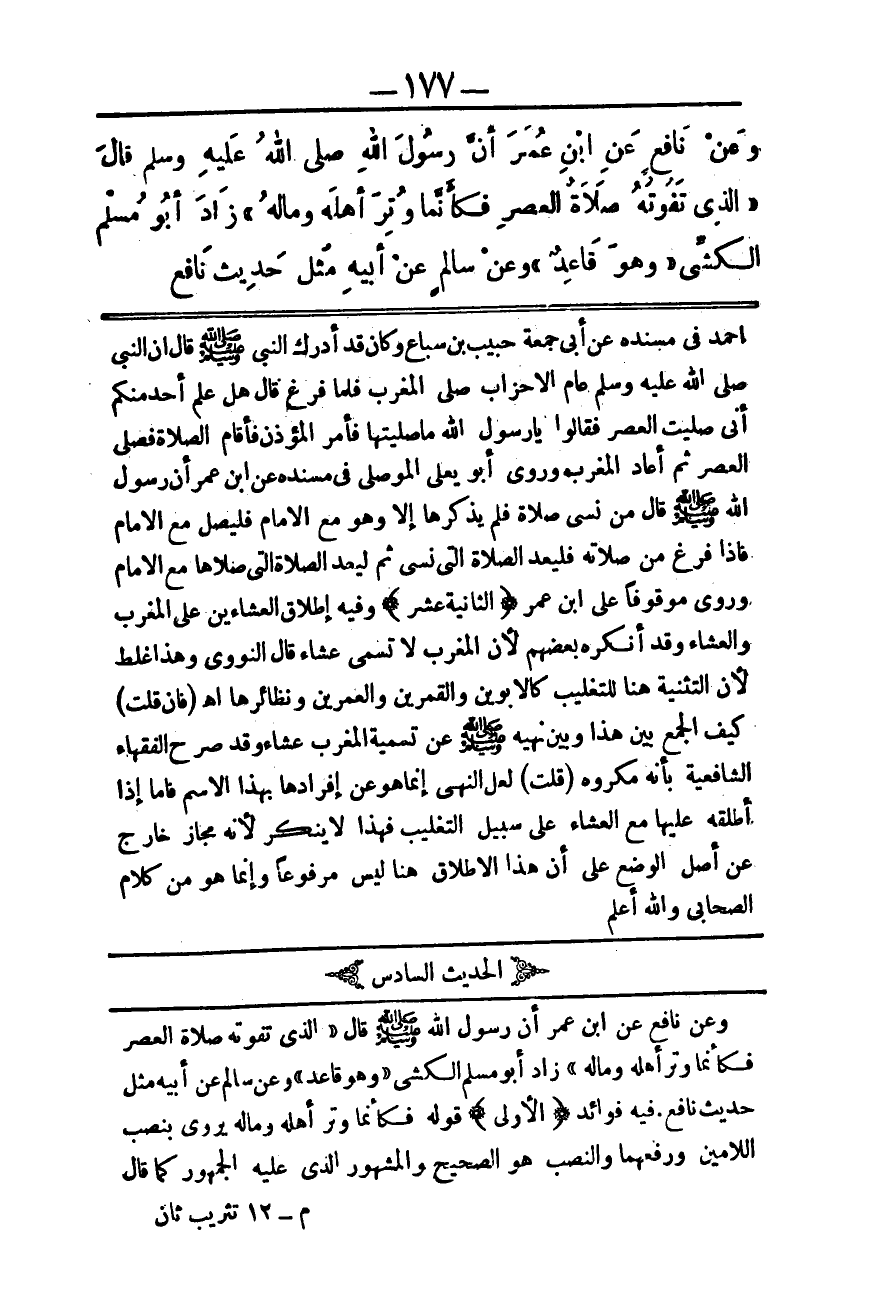 — ١٧٧ —
وَعَنْ نَافِعٍ عَنِ ابْنِ عُمَرَ أَنَّ رسُولَ اللهِ صلى اللهُ عَليهِ وسلم قالَ
« الذِى تَفُوتُهُ صَلَاةُ العصرِ فكأَنَّما وُتِرَ أهلَه ومالهُ » زَادَ أبُو مُسلْم
الكشِّى « وهوَ قَاعِدٌ » وعنْ سالمٍ عنْ أبيهِ مَثل حَديثِ نَافع
احمد فى مسنده عن أبى جمعة حبيب بن سباع وكان قد أدرك النبى ﷺ قال ان النبى
صلى الله عليه وسلم عام الاحزاب صلى المغرب فلما فرغ قال هل علم أحد منكم
أنى صليت العصر فقالوا يارسول الله ماصليتها فأمر المؤذن فأقام الصلاة فصلى
العصر ثم أعاد المغرب وروى أبو يعلى الموصلى فى مسنده عن ابن عمر أن رسول
الله ﷺ قال من نسى صلاة فلم يذكرها إلا وهو مع الامام فليصل مع الامام
فاذا فرغ من صلاته فليعد الصلاة التى نسى ثم ليعد الصلاة التى صلاها مع الامام
وروى موقوفاً على ابن عمر ﴿ الثانية عشر ﴾ وفيه إطلاق العشاءين على المغرب
والعشاء وقد أنكره بعضهم لأن المغرب لا تسمى عشاء قال النووى وهذا غلط
لأن التثنية هنا للتغليب كالابوين والقمرين والعمرين ونظائرها اه (فان قلت)
كيف الجمع بين هذا وبين نهيه ﷺ عن تسمية المغرب عشاء وقد صرح الفقهاء
الشافعية بأنه مكروه (قلت) لعل النهى إنماهو عن إفرادها بهذا الاسم فاما إذا
أطلقه عليها مع العشاء على سبيل التغليب فهذا لاينكر لأنه مجاز خارج
عن أصل الوضع على أن هذا الاطلاق هنا ليس مرفوعاً وإنما هو من كلام
الصحابى والله أعلم
الحديث السادس
وعن نافع عن ابن عمر أن رسول الله ﷺ قال « الذى تفوته صلاة العصر
فكأنما وتر أهله وماله » زاد أبو مسلم الكشى « وهو قاعد » وعن سالم عن أبيه مثل
حديث نافع . فيه فوائد ﴿ الأولى ﴾ قوله فكأنما وتر أهله وماله يروى بنصب
اللامين ورفعهما والنصب هو الصحيح والمشهور الذى عليه الجمهور كما قال
م – ١٢ تثريب ثان